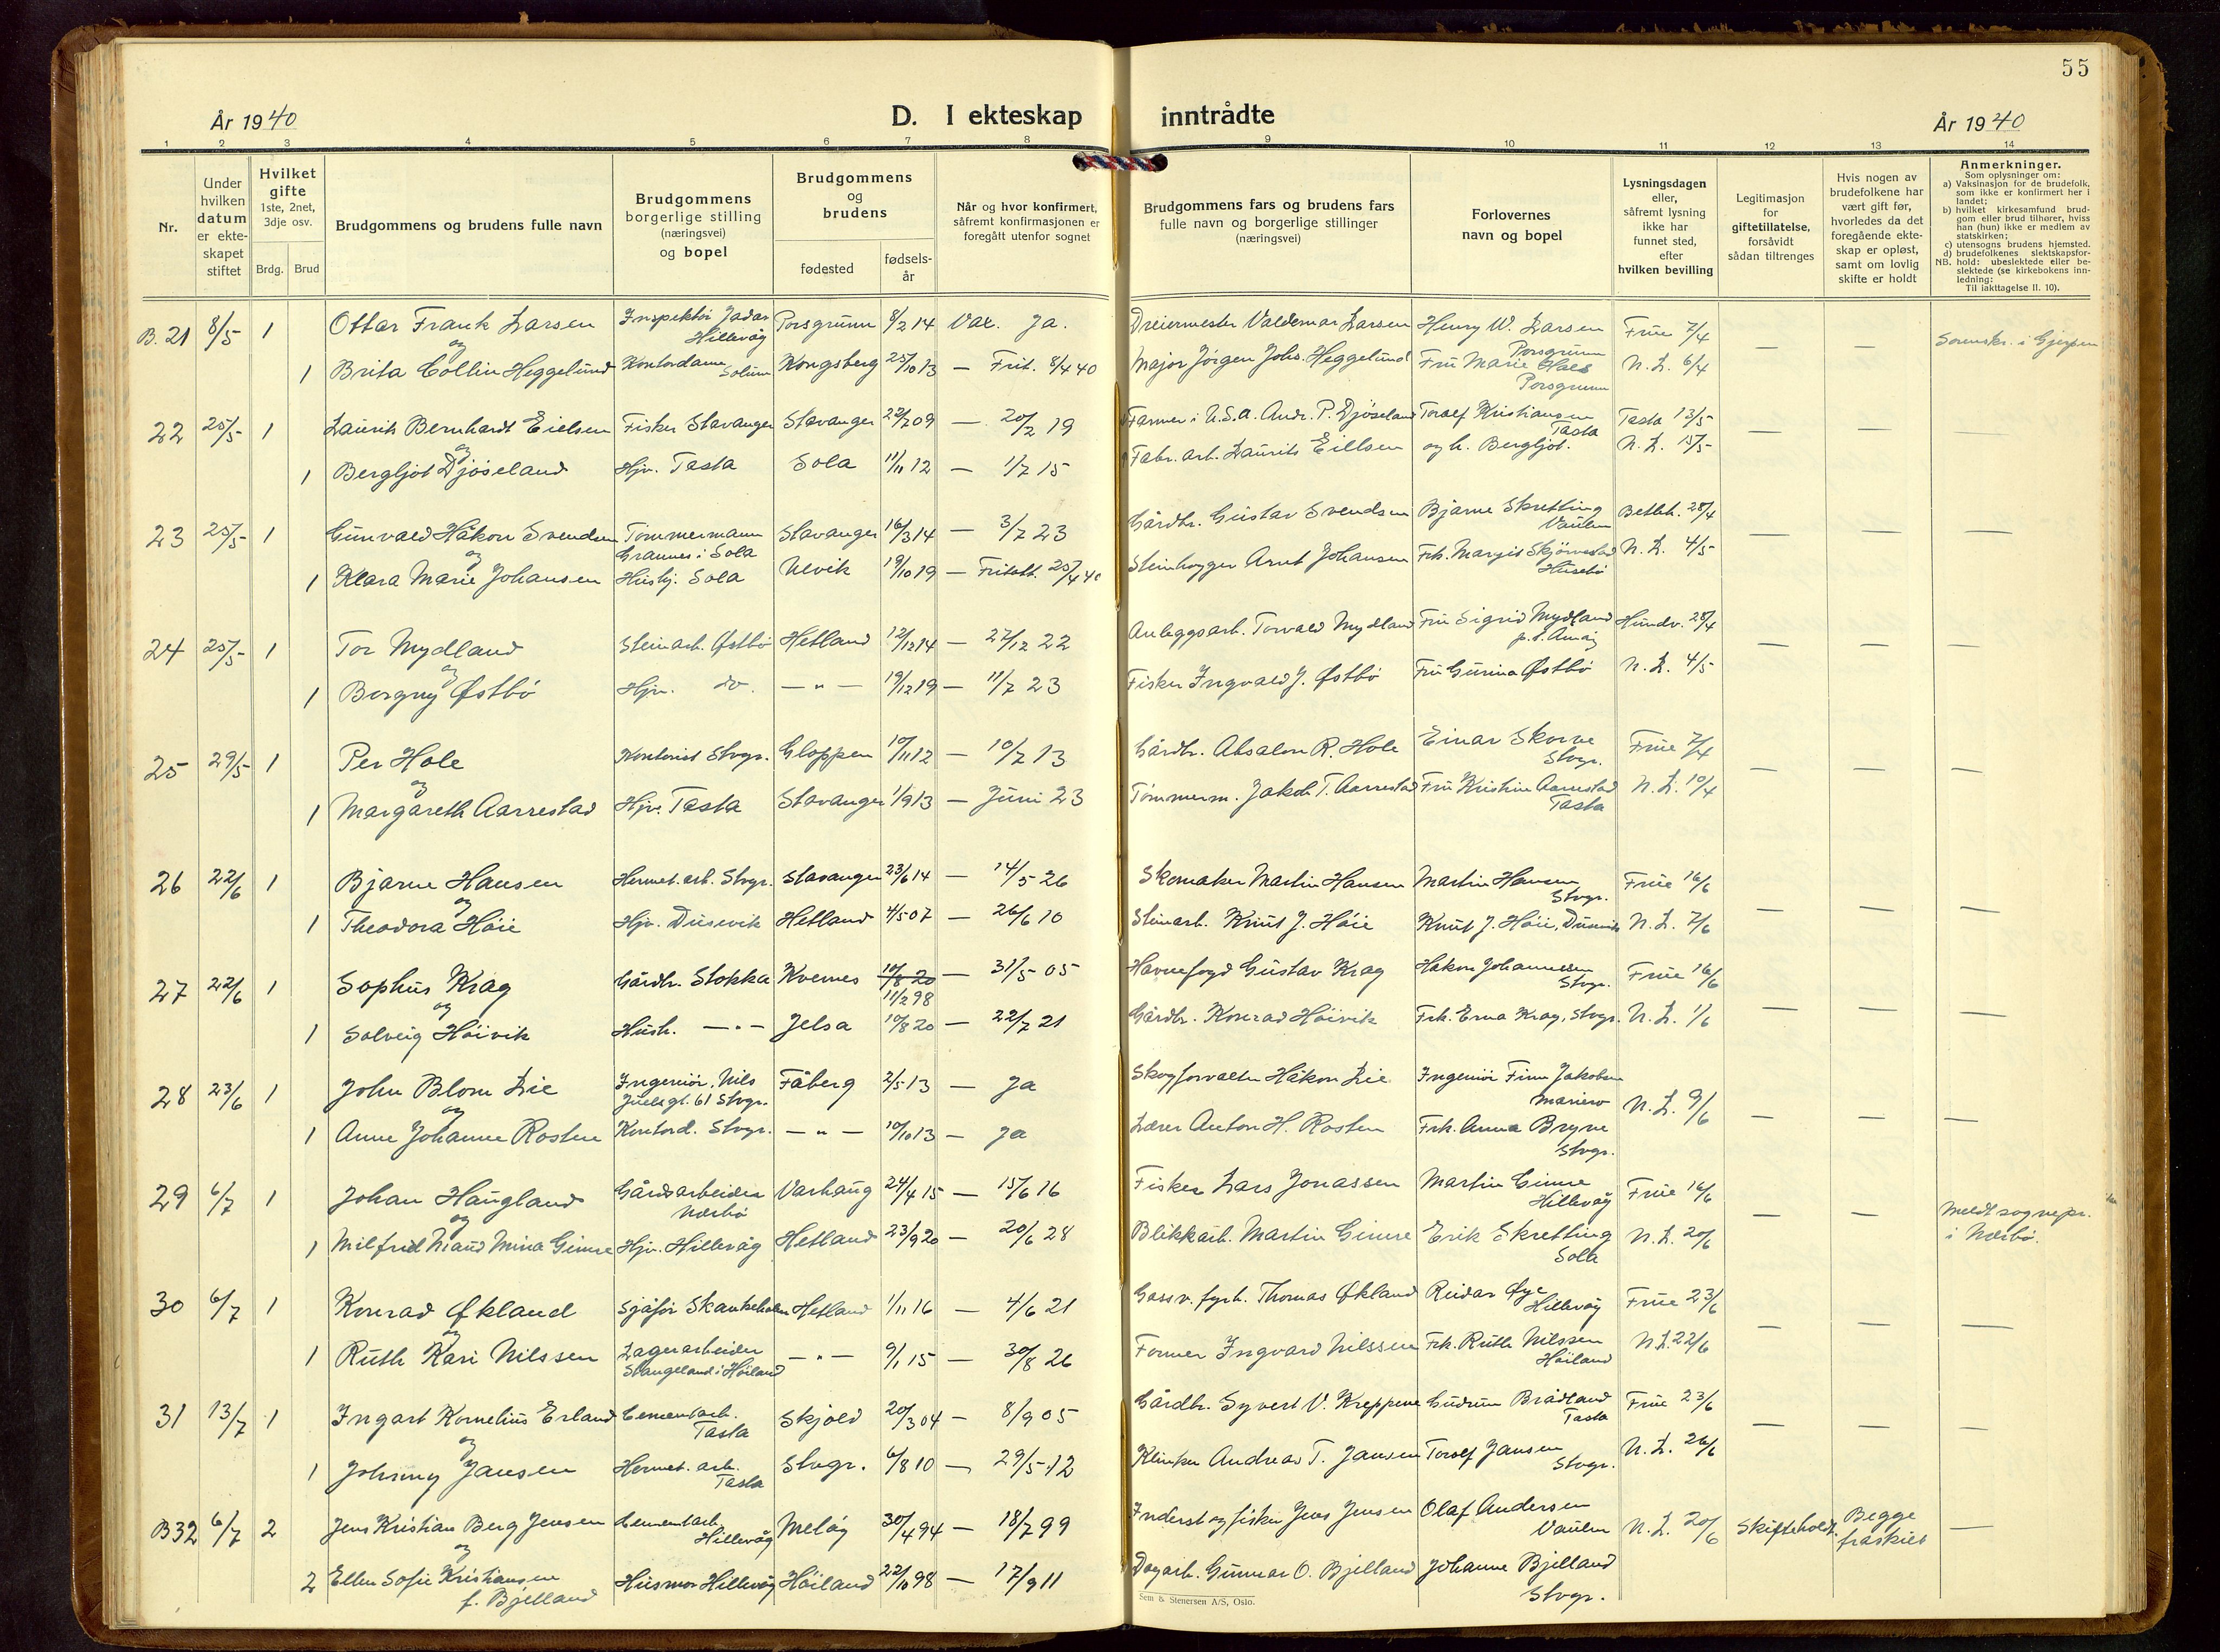 55
År 1940
D. I ekteskap inntrådte
År 1940
1 2 3 4 5 6 7 8 9 10 11 12 13 14
Nr.
Under hvilken datum er ekteskapet stiftet
Hvilket gifte
1ste, 2net, 3dje osv.
Brdg. Brud
Brudgommens og brudens fulle navn
Brudgommens borgerlige stilling (næringsvei) og bopel
Brudgommens og brudens
fødested
fødselsår
Når og hvor konfirmert, såfremt konfirmasjonen er foregått utenfor sognet
Brudgommens fars og brudens fars fulle navn og borgerlige stillinger (næringsvei)
Forlovernes navn og bopel
Lysningsdagen eller, såfremt lysning ikke har funnet sted, efter hvilken bevilling
Legitimasjon for giftetillatelse, forsåvidt sådan tiltrenges
Hvis nogen av brudefolkene har vært gift før, hvorledes da det foregående ekteskap er opløst, samt om lovlig skifte er holdt
Anmerkninger.
Som oplysninger om:
a) Vaksinasjon for de brudefolk, som ikke er konfirmert her i landet;
b) hvilket kirkesamfund brudgom eller brud tilhører, hviss han (hun) ikke er medlem av statskirken;
c) utensogns brudens hjemsted.
d) brudefolkenes slektskapsforhold: ubeslektede eller beslektede (se kirkebokens innledning:
NB. Til iakttagelse II. 10).
B. 21 8/5 1 Ottar Frank Larsen Inspektør Jadar Hillevåg Porsgrunn 8/2 14 Vax. Ja. Dreiermester Valdemar Larsen Henry W. Larsen Porsgrunn Frue 7/4 — — Sorenskr. i Gjerpen
og
1 Brita Collin Heggelund Kontordame Solum Kongsberg 25/10 13 — Frit. 8/4 40 Major Jørgen Johs. Heggelund Fru Marie Hals Porsgrunn N. L. 6/4
22 25/5 1 Laurits Bernhardt Eielsen Fisker Stavanger Stavanger 22/7 09 — 20/2 19 Farmer i U.S.A. Andr. P. Djøseland Torolf Kristiansen Tasta Tasta 13/5 — — —
og
1 Bergljot Djøseland Hjv. Tasta Sola 11/11 12 — 1/7 15 Fabr. arb. Laurits Eillsen og h. Bergljot. N. L. 15/5
23 25/5 1 Gunvald Håkon Svendsen Tømmermann Grannes i Sola Stavanger 16/3 14 — 3/7 23 Gårdbr. Gustav Svendsen Bjarne Skretting Vaulen Betleh. 28/4 — — —
og
1 Klara Marie Johansen Hushj. Sola Ulvik 19/10 19 — Fritatt. 25/4 40 Steinhogger Arnt Johansen Frk. Margit Skjørvestad Husebø N. L. 4/5
24 25/5 1 Tor Mydland Steinarb. Østbø Hetland 12/12 14 — 27/12 22 Anleggsarb. Torvald Mydland Fru Sigrid Mydland p.t. Amøy Hundv. 28/4 — — —
og
1 Borgny Østbø Hjv. do. — " — 19/12 19 — 11/7 23 Fisker Ingvald J. Østbø Fru Gurina Østbø N. L. 4/5
25 29/5 1 Per Hole Kontorist Stvgr. Gloppen 10/11 12 — 10/7 13 Gårdbr. Absalon R. Hole Einar Skorve Stvgr. Frue 7/4 — — —
og
1 Margareth Aarrestad Hjv. Tasta Stavanger 1/9 13 — Juni 23 Tømmerm. Jakob T. Aarrestad Fru Kristine Aarrestad Tasta N. L. 10/4
26 22/6 1 Bjarne Hansen Hermet. arb. Stvgr. Stavanger 23/6 14 — 14/5 26 Skomaker Martin Hansen Martin Hansen Stvgr. Frue 16/6 — — —
og
1 Theodora Høie Hjv. Dusevik Hetland 4/5 07 — 26/6 10 Steinarb. Knut J. Høie Knut J. Høie, Dusevik N. L. 7/6
27 22/6 1 Sophus Krag Gårdbr. Stokka Kvernes 10/8 20 11/2 98 — 31/5 05 Havnefogd Gustav Krag Håkon Johannessen Stvgr. Frue 16/6 — — —
og
1 Solveig Høivik Hush. — " — Jelsa 10/8 20 — 22/7 21 Gårdbr. Konrad Høivik Frk. Erna Krag, Stvgr. N. L. 1/6
28 23/6 1 John Blom Lie Ingeniør. Nils Juelsgt. 61 Stvgr. Fåberg 2/5 13 — Ja Skogforvalter Håkon Lie Ingeniør Finn Jakobsen Mariero N. L. 9/6 — — —
og
1 Anne Johanne Rosten Kontord. Stvgr. — " — 10/10 13 — Ja Lærer Anton H. Rosten Frk. Anna Bryne Stvgr.
29 6/7 1 Johan Haugland Gårdsarbeider Nærbø Varhaug 24/4 15 — 15/6 16 Fisker Lars Jonassen Martin Gimre Hillevåg Frue 16/6 — — Meldt sognepr. i Nærbø.
og
1 Milfrid Maud Mina Gimre Hjv. Hillevåg Hetland 23/9 20 — 20/6 28 Blikkarb. Martin Gimre Erik Skretting Sola N. L. 20/6
30 6/7 1 Konrad Økland Sjåfør Skankeholen Hetland 1/11 16 — 4/6 21 Gassv. fyrb. Thomas Økland Reidar Øye Hillevåg Frue 23/6 — — —
og
1 Ruth Kari Nilssen Lagerarbeider Stangeland i Høiland — " — 9/1 15 — 30/8 26 Former Ingvard Nilssen Frk. Ruth Nilssen Høiland N. L. 22/6
31 13/7 1 Ingart Kornelius Erland Cementarb. Tasta Skjold 20/3 04 — 8/9 05 Gårdbr. Syvert V. Kreppene Gudrun Brådland Tasta Frue 23/6 — — —
og
1 Johnny Jansen Hermet. arb. Tasta Stvgr. 6/8 10 — 29/5 12 Klinker Andreas T. Jansen Torolf Jansen Stvgr. N. L. 26/6
B32 6/7 2 Jens Kristian Berg Jensen Cementarb. Hillevåg Meløy 30/4 94 — 18/7 99 Inderst og fisker Jens Jensen Olaf Andersen Vaulen N. L. 20/6 Skifteholdt. Begge fraskilt —
og
2 Ellen Sofie Kristiansen f. Bjelland Husmor Hillevåg Høiland 22/10 98 — 17/9 11 Dagarb. Gunnar O. Bjelland Johanne Bjelland Stvgr.
Sem & Stenersen A/S, Oslo.